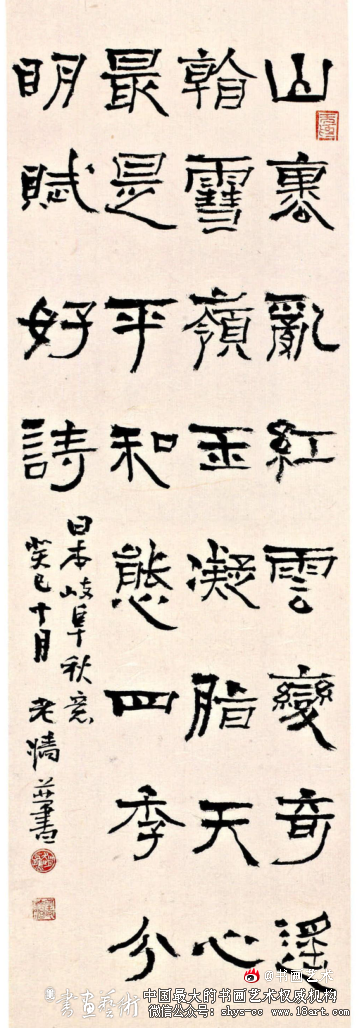 山裏亂紅雲變奇遥
看雪嶺玉凝脂天心
最是平和態四季分
明賦好詩
日本岐阜秋意
癸巳十月 老墙并書
@书画艺术
書畫藝術
中国最大的书画艺术权威机构
微信公众号：shys-cc 网址：www.18art.com